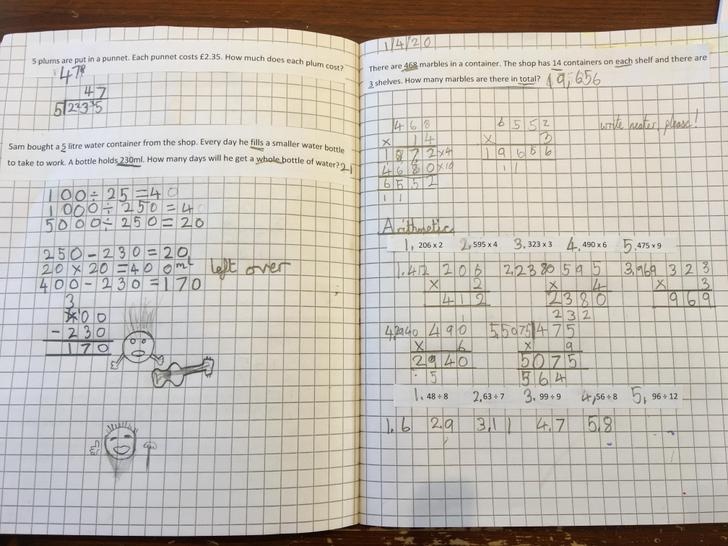 5 plums are put in a punnet. Each punnet costs £2.35. How much does each plum cost?
47p
47
5 2 ²2 ³5
Sam bought a 5 litre water container from the shop. Every day he fills a smaller water bottle
to take to work. A bottle holds 230ml. How many days will he get a whole bottle of water? 21
100 ÷ 25 = 40
1000 ÷ 250 = 4
5000 ÷ 250 = 20
250 - 230 = 20
20 x 20 = 400 ml left over
400 - 230 = 170
3
400
- 230
170
1/4/20
There are 468 marbles in a container. The shop has 14 containers on each shelf and there are
3 shelves. How many marbles are there in total? 19,656
write neater, please!
468
x 14
1872 x4
4680 x10
6552
11
6552
x 3
19656
11
Arithmetic
1, 206 x 2 2, 595 x 4 3, 323 x 3 4, 490 x 6 5, 475 x 9
1, 412 206
x 2
412
1
2, 2380 595
x 4
2380
232
3, 969 323
x 3
969
4, 2940 490
x 6
2940
5
5, 5075 475
x 9
5075
564
1, 48 ÷ 8 2, 63 ÷ 7 3, 99 ÷ 9 4, 56 ÷ 8 5, 96 ÷ 12
1, 6 2, 9 3, 11 4, 7 5, 8